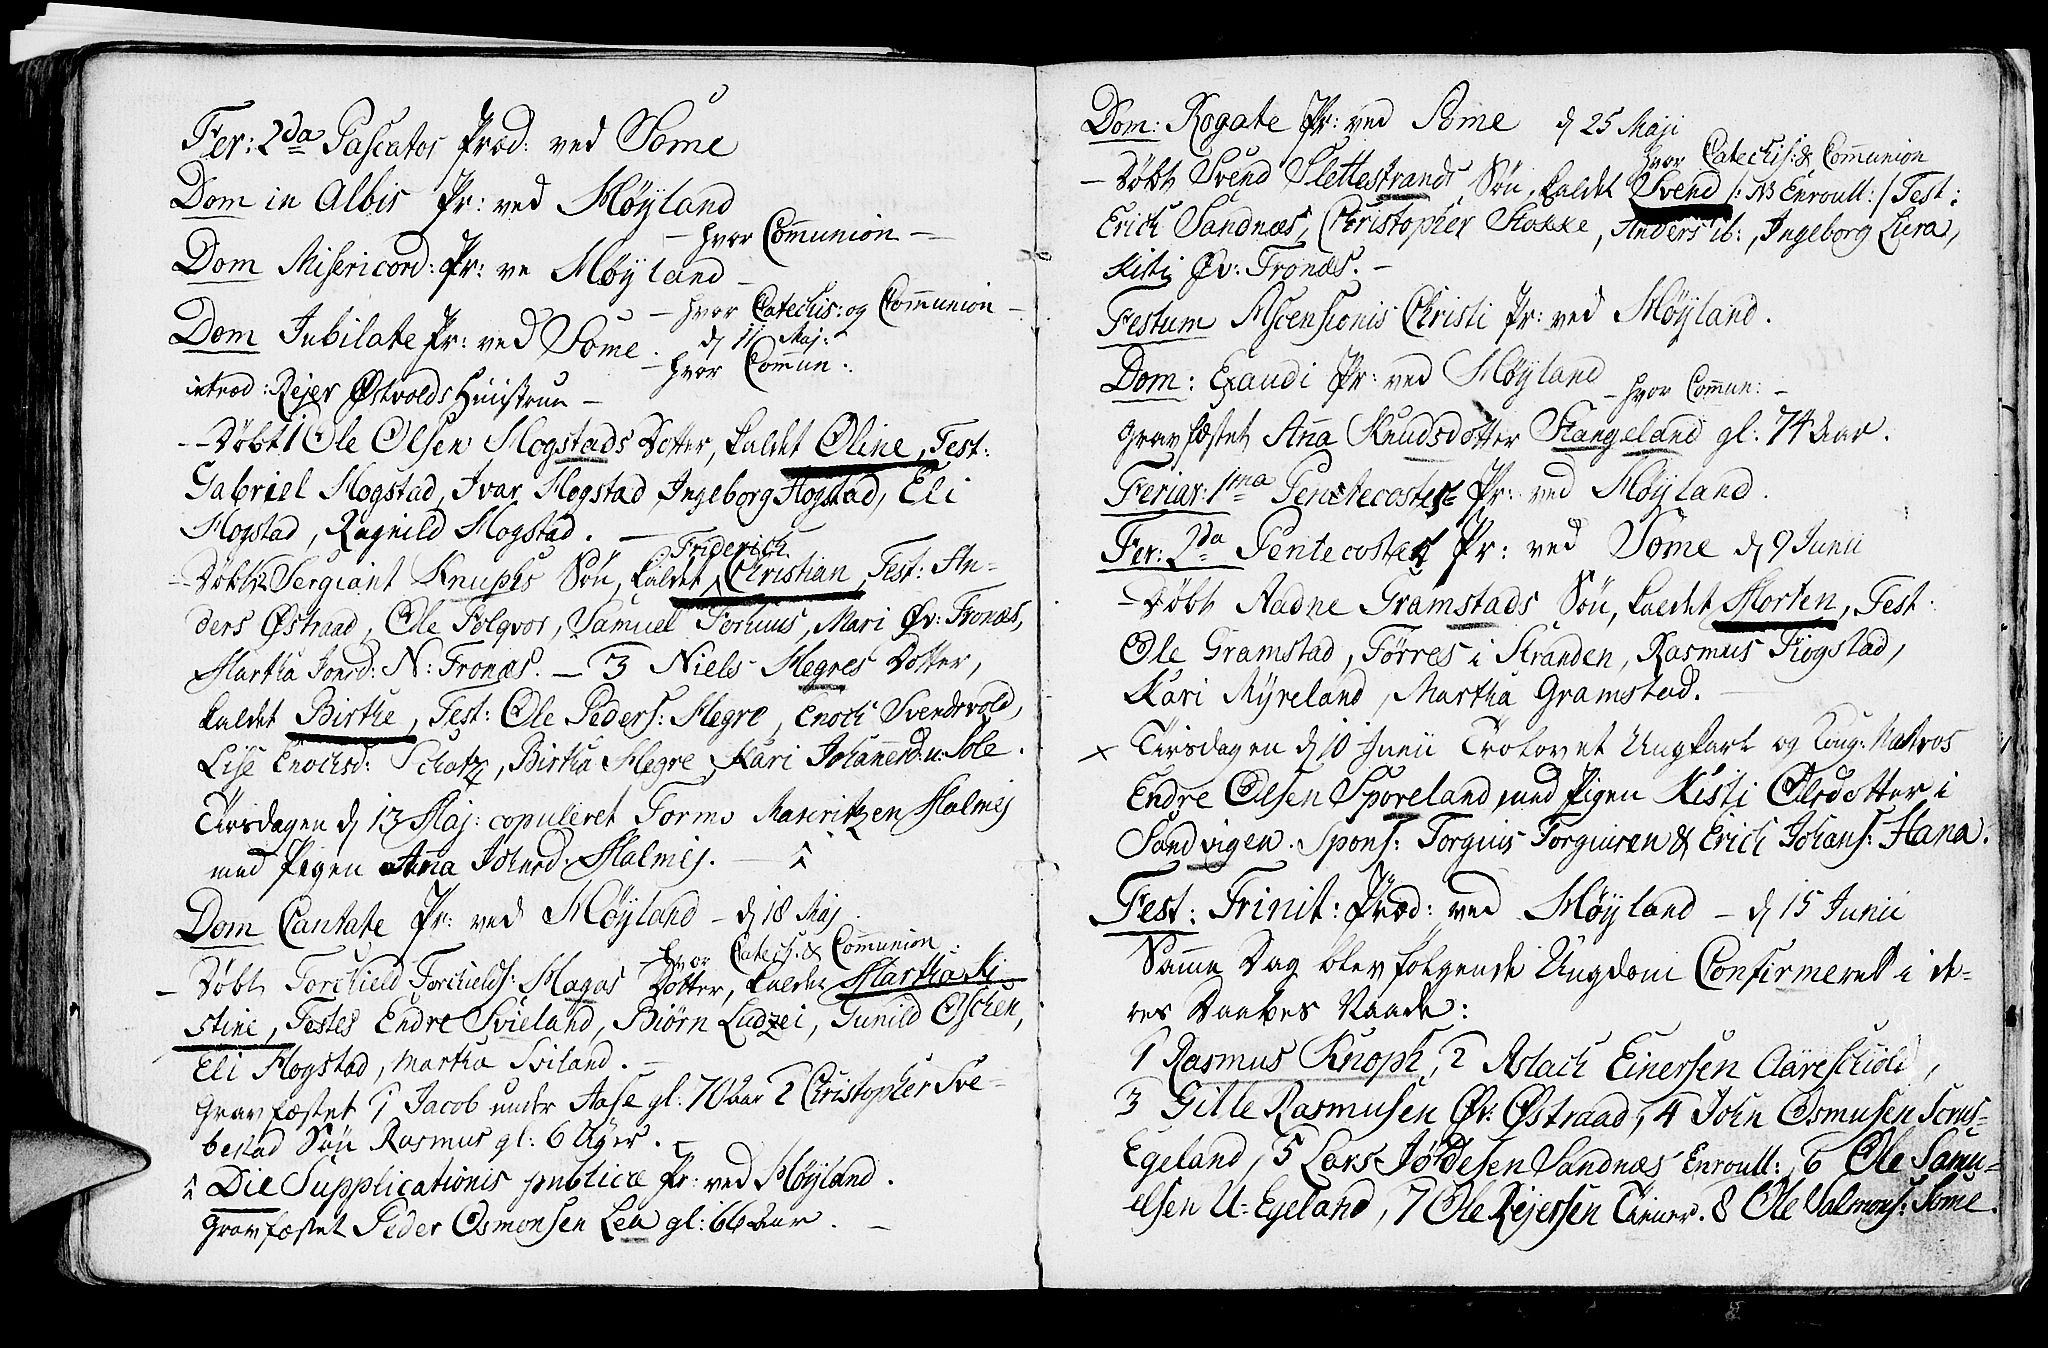 Fer: 2da Pascatos Præd: ved Some
Dom in Albis Pr: ved Høyland
- hvor Communion -
Dom Misericord: Pr: ve Høyland -
- hvor Catechis: og Communion -
Dom Jubilate Pr: ved Some. d 11 Maj:
- hvor Commun:
introd: Rejer Østvolds Huustrue -
- Døbt 1 Ole Olsen Hogstads Dotter, kaldet Oline, Test:
Gabriel Hogstad, Ivar Hogstad, Ingeborg Hogstad, Eli
Hogstad, Ragnild Hogstad. -
Friderich
- Døbt 2 Sergiant Knuphs Søn, kaldet Christian, Test: An-
ders Østraad, Ole Folqvor, Samuel Foruus, Mari Øv: Tronæs,
Martha Jonsd: N: Tronæs. - 3 Niels Hegres Dotter,
kaldet Birthe, Test: Ole Peders: Hegre, Enoch Svendsvold,
Lise Enochsd: Schatz, Birtha Hegre, Kari Johannesd: u: Sole.
Tirsdagen d 13 Maj: copuleret Tormo Mauritzen Malmej
med Pigen Anna Johnsd: Malmej. -
Dom Cantate Pr: ved Høyland - d 18 Maj.
- hvor Catech: & Communion.
- Døbt Torchield Torchields: Hagas Dotter, kaldet Martha Ki-
stine, Testes Endre Svieland, Biørn Ludzei, Gunild Oschen,
Eli Hogstad, Martha Sviland. -
Gravfæstet 1 Jacob under Aase gl: 70 Aar 2 Christopher Sve-
bestad Søn Rasmus gl: 6 Uger. -
Die Supplicationis publicæ Pr: ved Høyland.
Gravfæstet Peder Osmonsen Lea gl: 66 Aar. -
Dom: Rogate Pr: ved Some d 25 Maji
hvor Catechis: & Communion
- Døbt Svend Slettestrands Søn, kaldet Svend /: NB Enroull: / Test:
Erich Sandnæs, Christopher Stokke, Anders ib:, Ingeborg Lura,
Kisti Øv: Tronæs. -
Festum Ascensionis Christi Pr: ved Høyland.
Dom: Exaudi Pr: ved Høyland - hvor Commun: -
Gravfæstet Anna Knudsdotter Stangeland gl: 74 Aar.
Feriar: 1ma Pentecostes Pr: ved Høyland.
Fer: 2da Pentecostes Pr: ved Some d 9 Junii
- Døbt Aadne Gramstads Søn, kaldet Morten, Test:
Ole Gramstad, Törres i Stranden, Rasmus Kiogstad,
Kari Myreland, Martha Gramstad. -
x Tirsdagen d 10 Junii Trolovet Ungkarl og Kong: Matros
Endre Olsen Sporeland med Pigen Kisti Olsdotter i
Sandvigen. Spons: Torguus Torguusen & Erich Johans: Hana.
Fest: Trinit: Præd: ved Høyland - d 15 Junii
Samme Dag blev følgende Ungdom Confirmeret i de-
res Daabes Naade:
1 Rasmus Knoph, 2 Aslach Einersen Aareschiold,
3 Gitle Rasmusen Øv: Østraad, 4 John Osmusen Scrus-
Egeland, 5 Lars Jørdesen Sandnæs Enroull:, 6 Ole Samu-
elsen U: Egeland, 7 Ole Rejersen Tiener. 8 Ole Salmons: Some.